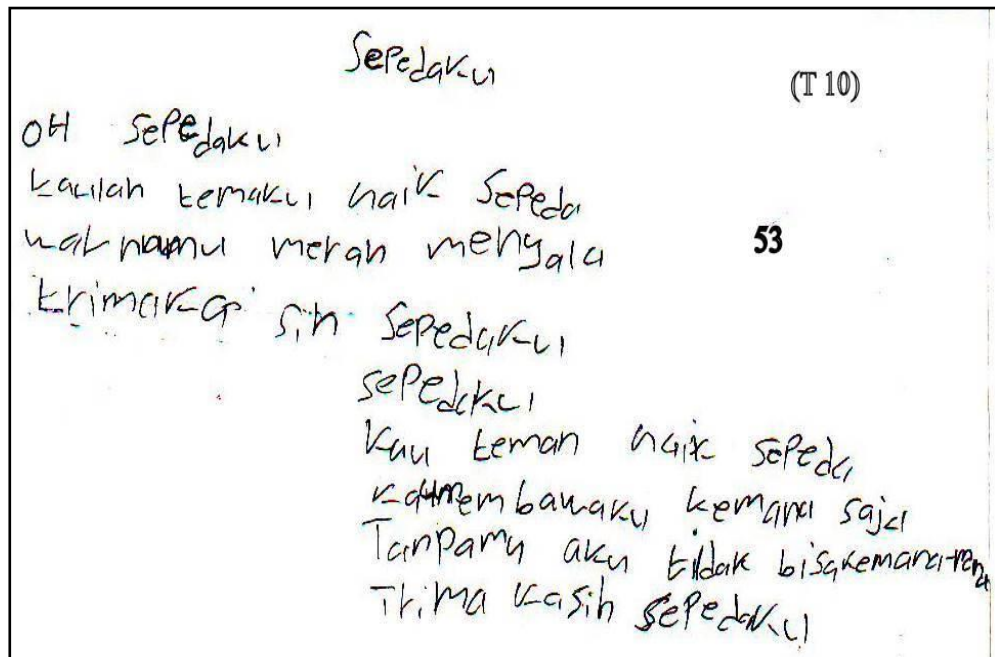 Sepedaku
(T 10)
OH Sepedaku
kaulah temaku naik Sepeda
warnamu merah menyala
53
trimaka sih Sepedaku
sepedaku
kau teman naik sepeda
kaumembawaku kemana saja
Tanpamu aku tidak bisakemana-mana
Trima kasih sepedaku